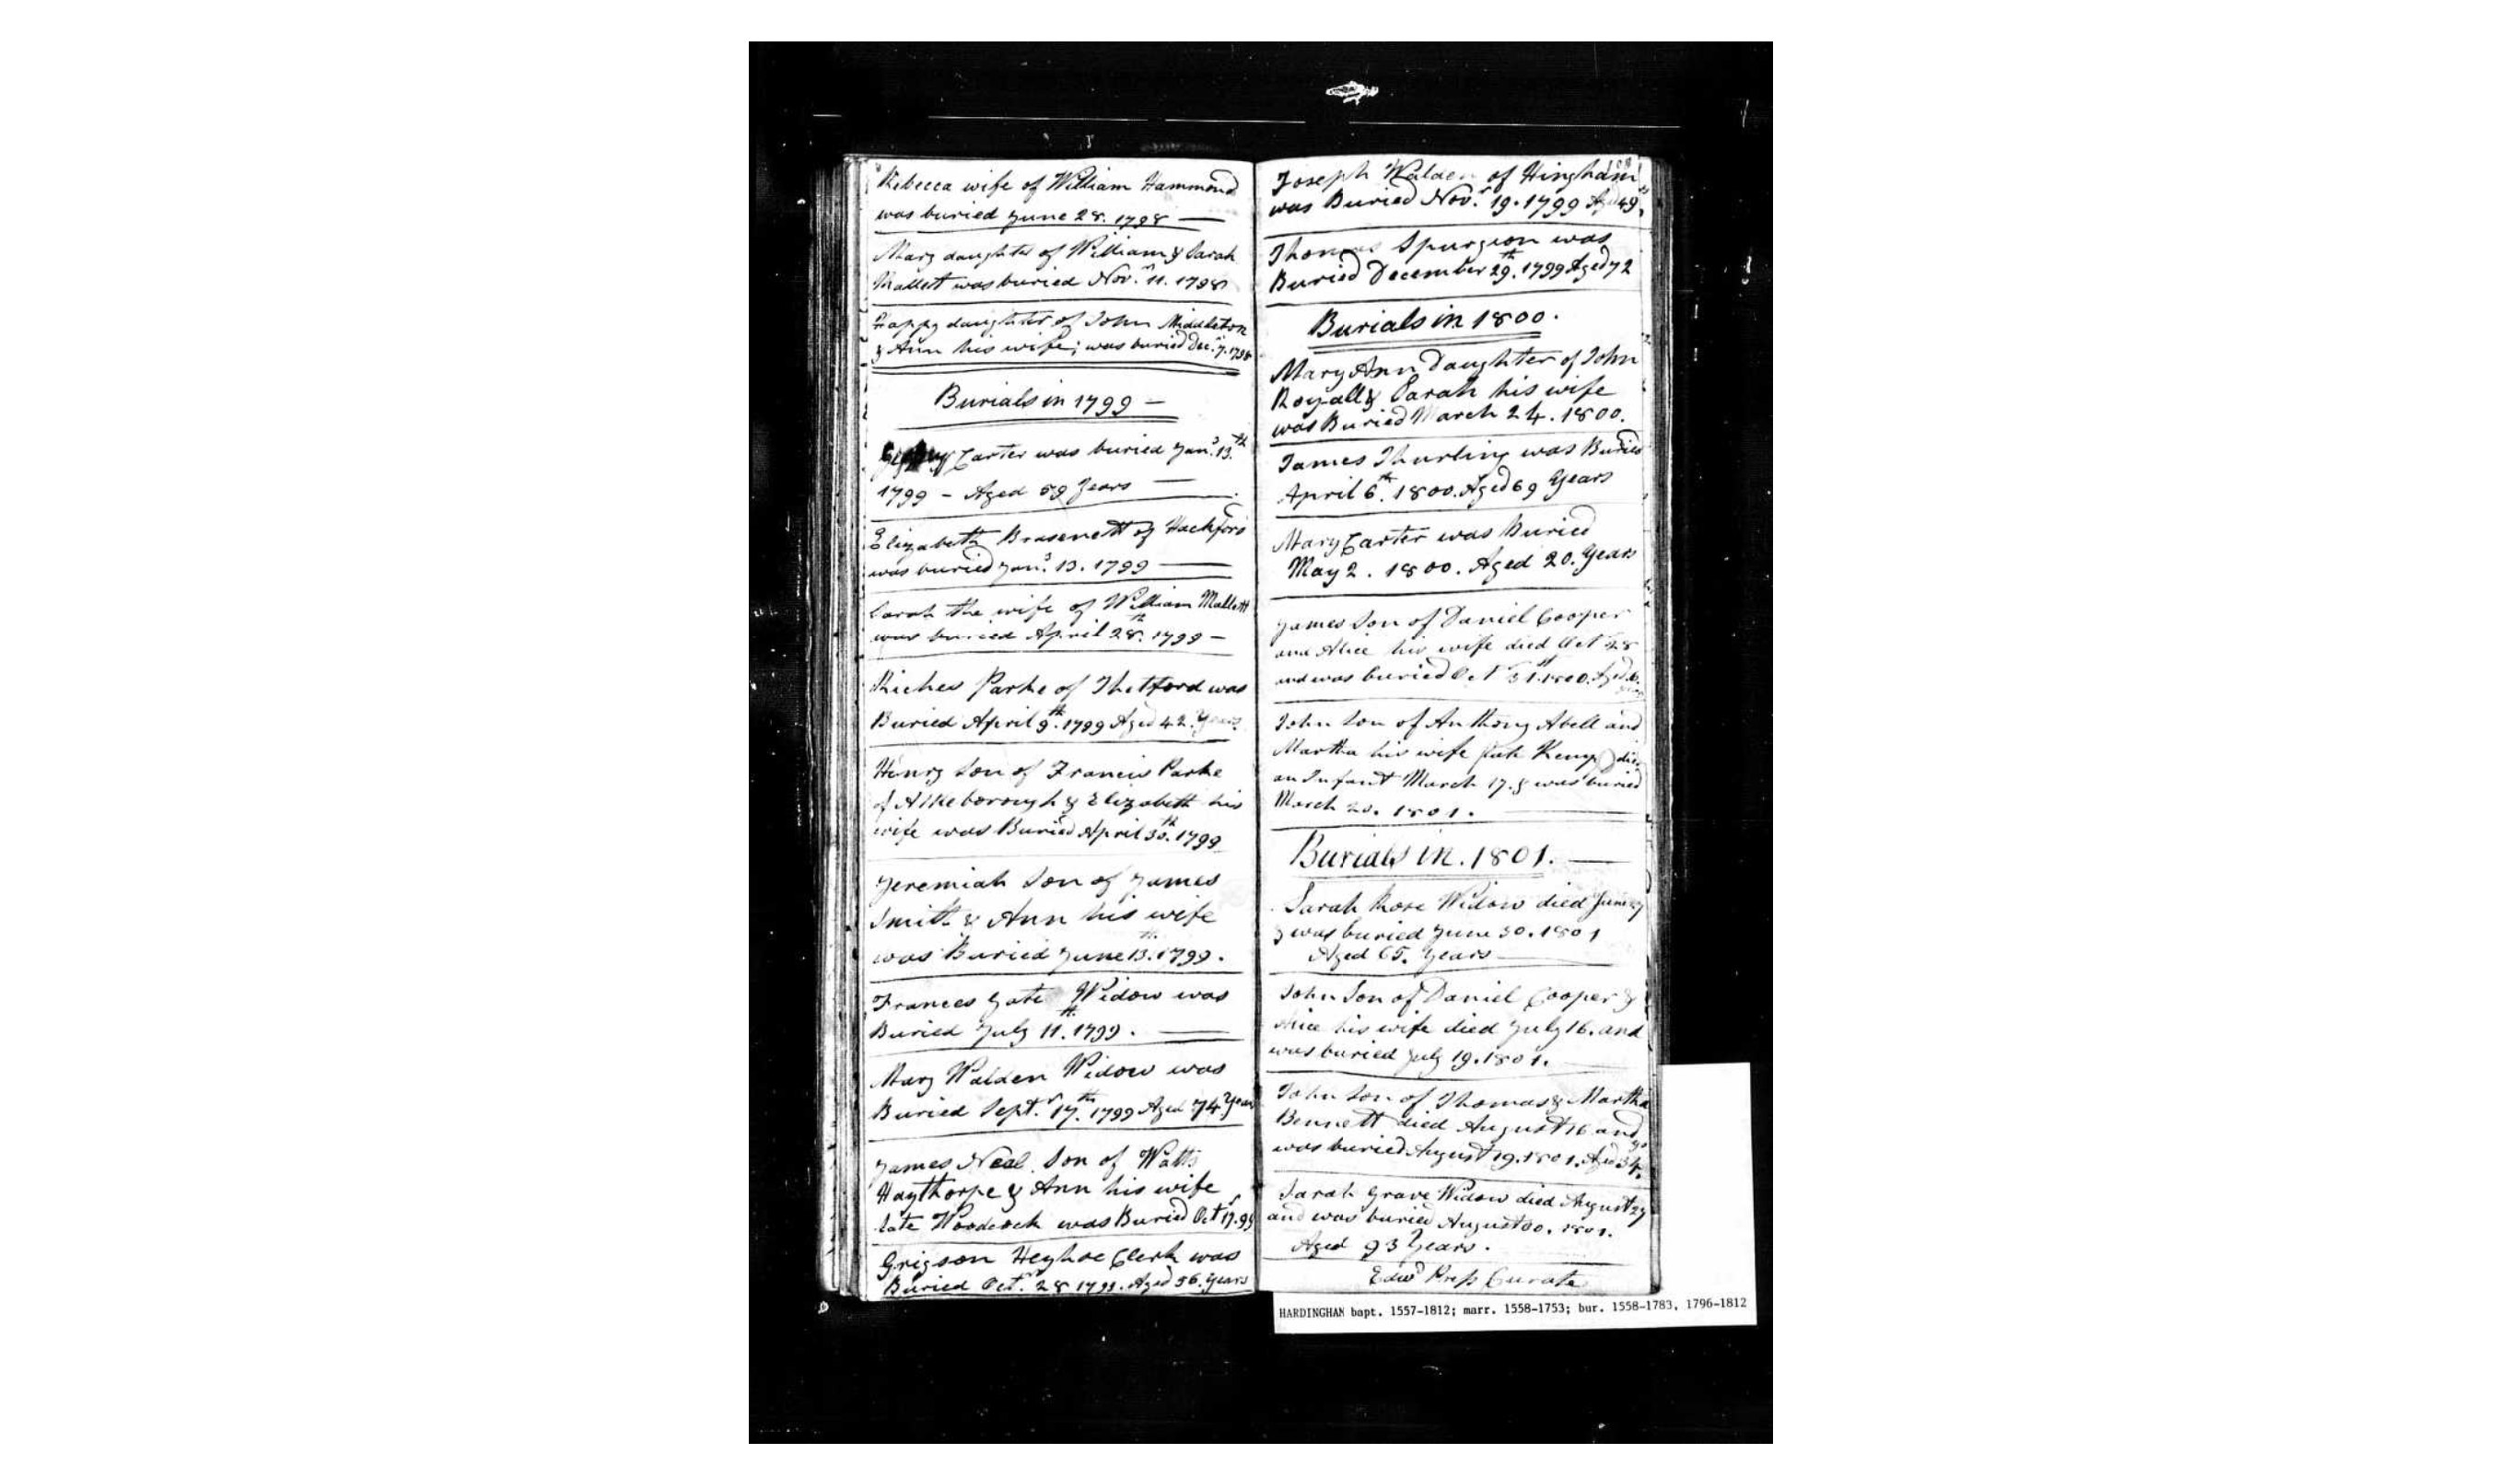 Rebecca wife of William Hammond
was buried June 28. 1798
Mary daughter of William & Sarah
Mallett was buried Nov.r 11. 1798
Happy daughter of John Middleton
& Ann his wife; was buried Dec.r 7. 1798
Burials in 1799 –
Carter was buried Jan.y 13.th
1799 – Aged 59 Years
Elizabeth Brasenett of Hackford
was buried Jan.y 13. 1799
Sarah the wife of William Mallett
was buried April 28.th 1799 –
Riches Parke of Thetford was
Buried April 9.th 1799 Aged 42. Years.
Henry Son of Francis Parke
of Attleborough & Elizabeth his
wife was Buried April 30.th 1799
Jeremiah Son of James
Smith & Ann his wife
was Buried June 13.th 1799.
Frances Gate Widow was
Buried July 11.th 1799.
Mary Walden Widow was
Buried Sept.r 17.th 1799 Aged 74 Years
James Neal Son of Watts
Haythorpe & Ann his wife
late Woodcock was Buried Oct.r 17. 99
Grigson Heyhoe Clerk was
Buried Oct.r 28 1799. Aged 56. Years
Joseph Walden of Hingham
was Buried Nov.r 19. 1799 Aged 49.
Thomas Spurgeon was
Buried December 29.th 1799 Aged 72
Burials in 1800.
Mary Ann Daughter of John
Royall & Sarah his wife
was Buried March 24. 1800.
James Thurling was Buried
April 6.th 1800. Aged 69 Years
Mary Carter was Buried
May 2. 1800. Aged 20. Years
James Son of Daniel Cooper
and Alice his wife died Oct 28
and was buried Oct 31.st 1800. Aged 6.
John Son of Anthony Abell and
Martha his wife (late Kemp) died
an Infant March 17. & was buried
March 20. 1801.
Burials in. 1801.
Sarah Rose Widow died June 27
& was buried June 30. 1801
Aged 65. Years
John Son of Daniel Cooper &
Alice his wife died July 16. and
was buried July 19. 1801.
John Son of Thomas & Martha
Bennett died August 16 and
was buried August 19. 1801. Aged 34.
Sarah Grave Widow died August 27
and was buried August 30. 1801.
Aged 93 Years.
Edw.d Press Curate
HARDINGHAM bapt. 1557-1812; marr. 1558-1753; bur. 1558-1783, 1796-1812